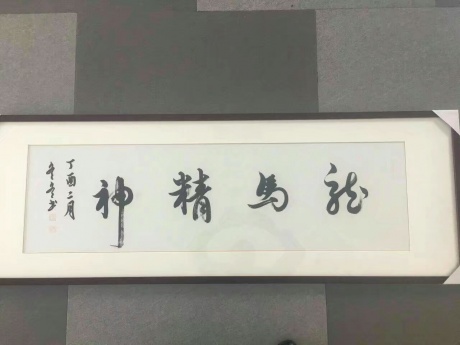 龍馬精神
丁酉二月